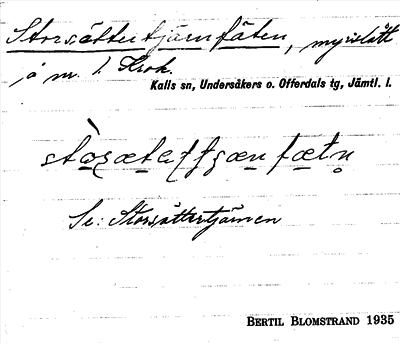 Storsättertjärnfäten, myrslått
å m. l. Krok.
Kalls sn, Undersåkers o. Offerdals tg, Jämtl. l.
Se: Storsättertjärnen
BERTIL BLOMSTRAND 1935